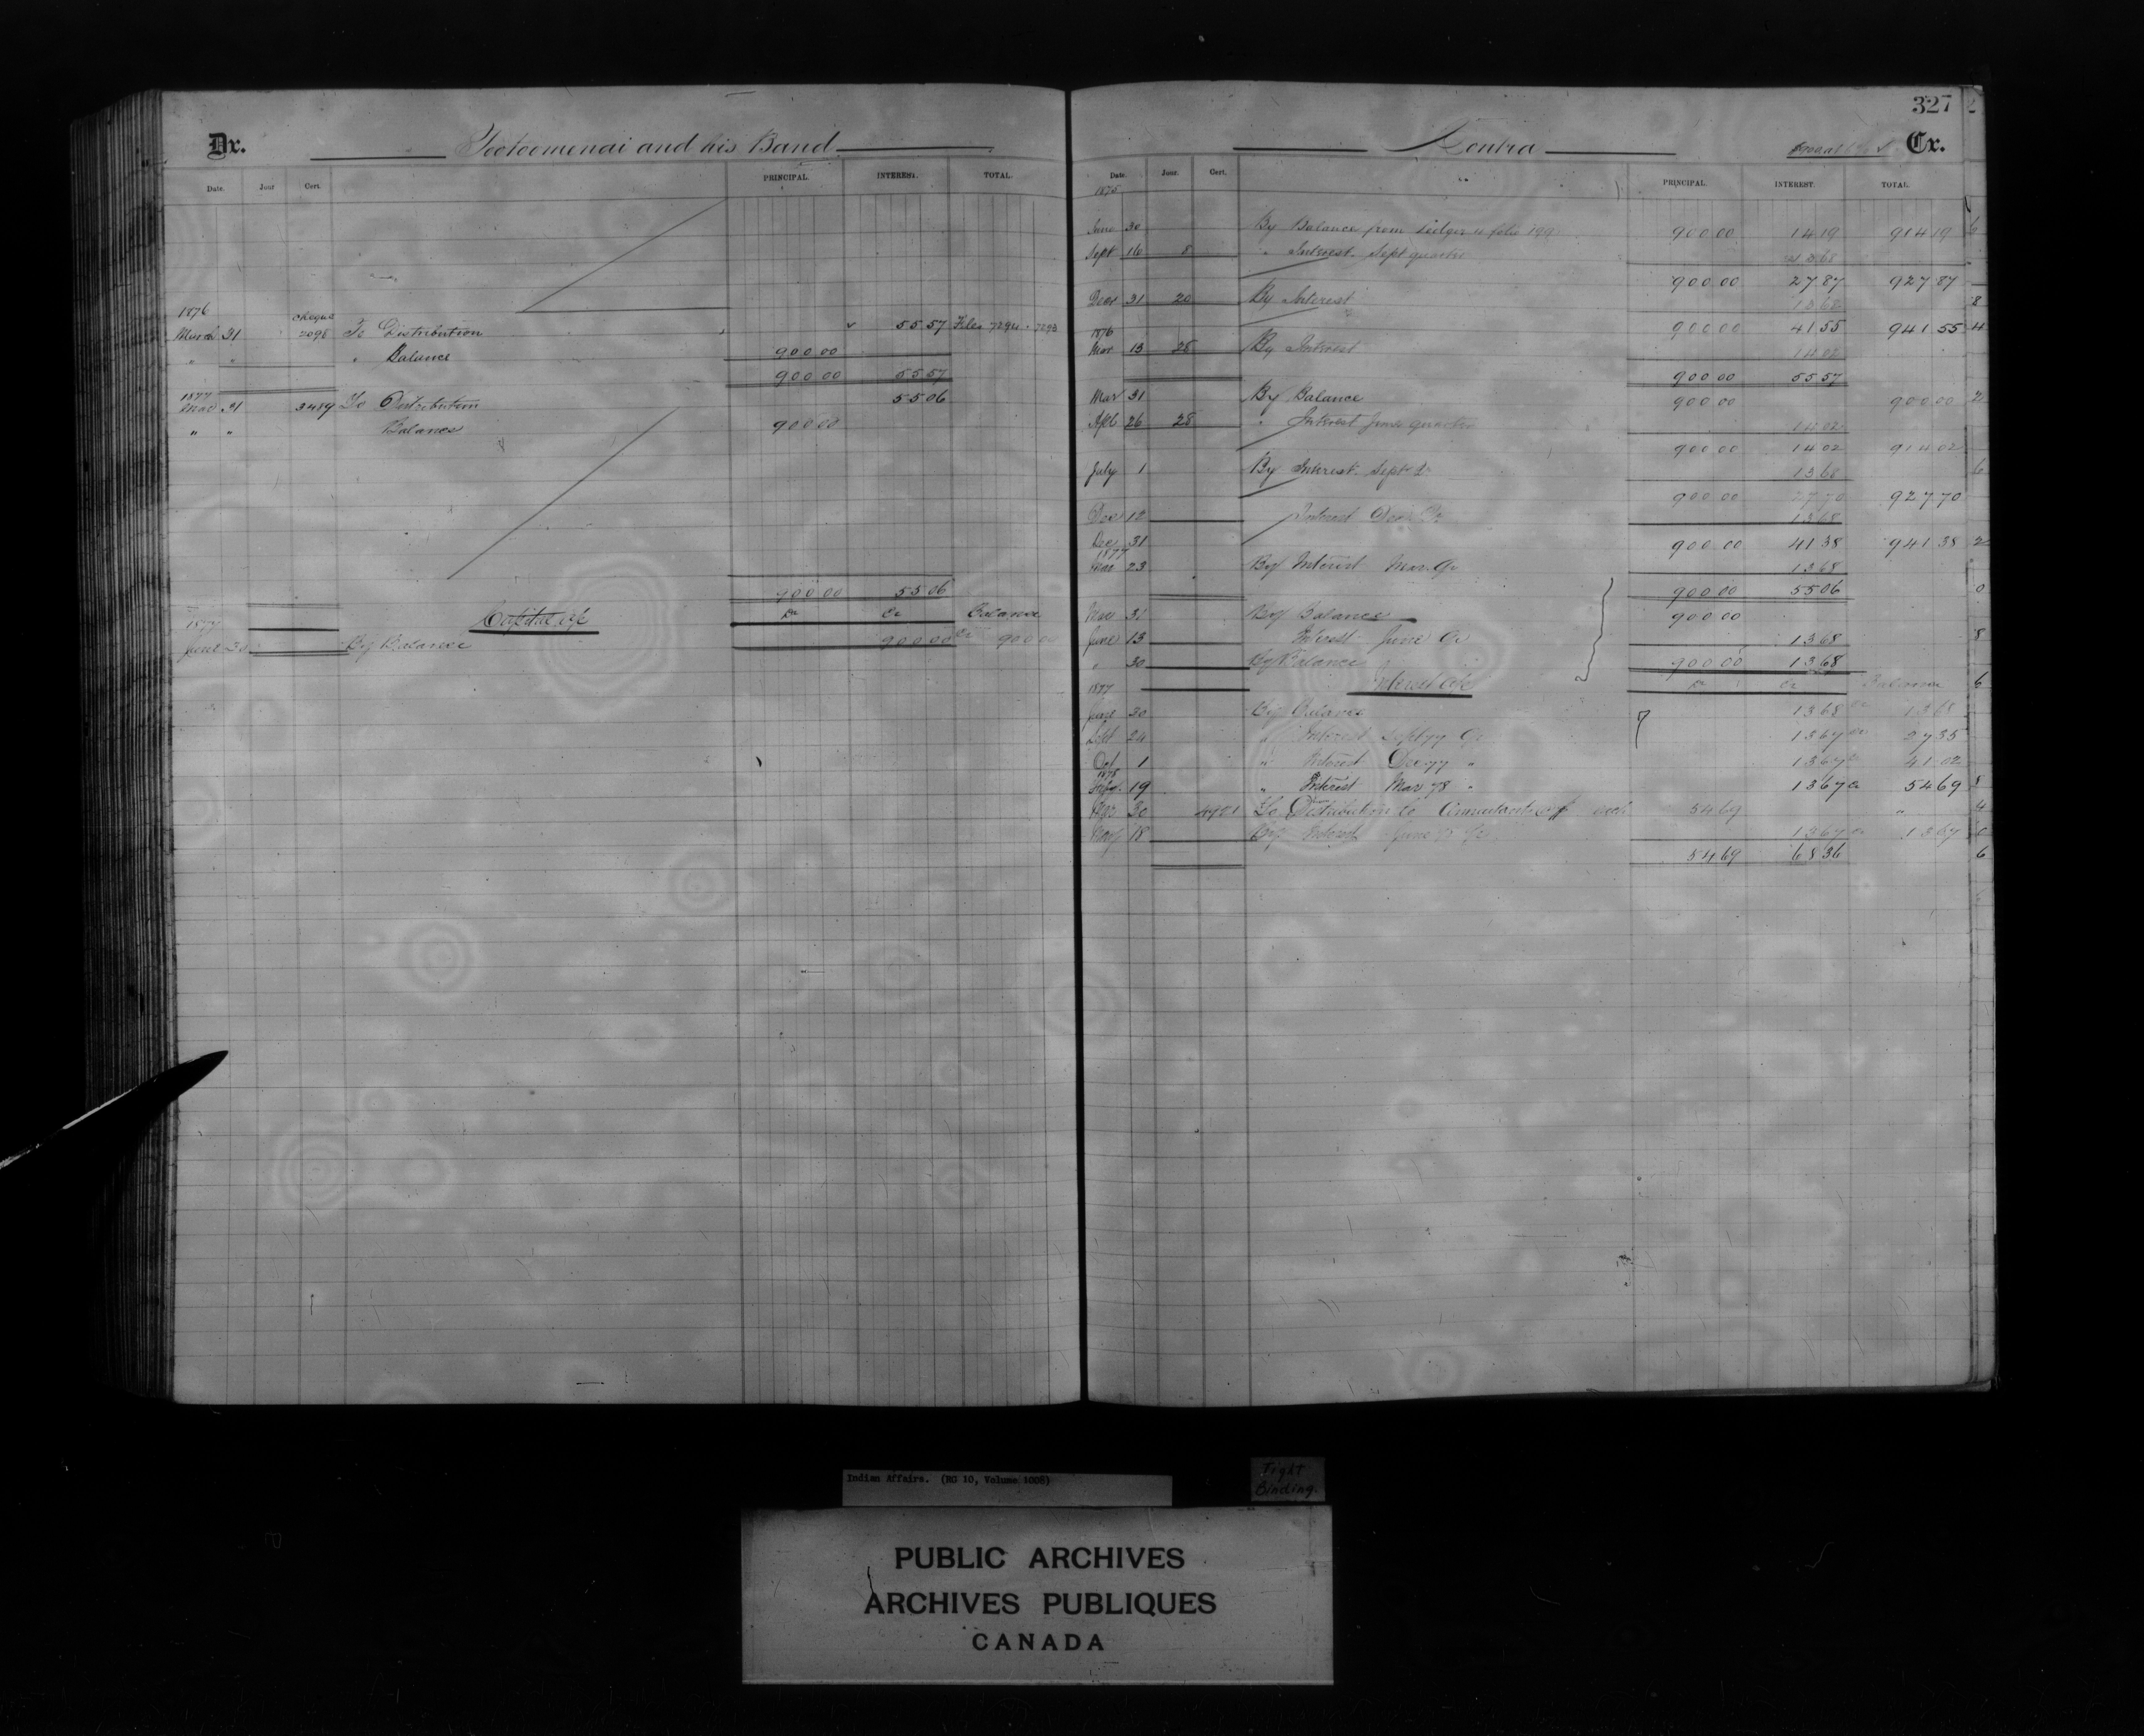 327
Dr. Tootoomenai and his Band
Date. Jour Cert. PRINCIPAL. INTEREST. TOTAL.
1876 Cheque
March 31 2098 To Distribution 55 57 Files 7294 7293
" " " Balance 900 00
900 00 55 57
1877
Mar 31 3489 To Distribution 55 06
" " Balance 900 00
900 00 55 06
1877 Capital a/c Dr Cr Balance
June 30 By Balance 900 00 Cr 900 00
Contra Cr.
Date. Jour. Cert. PRINCIPAL. INTEREST. TOTAL.
1875
June 30 By Balance from Ledger folio 199 900 00 14 19 914 19
Sept 16 8 " Interest Sept quarter 13 68
900 00 27 87 927 87
Decr 31 20 By Interest 13 68
900 00 41 55 941 55
1876
Mar 13 28 By Interest 14 02
900 00 55 57
Mar 31 By Balance 900 00 900 00
Apl 26 28 " Interest June quarter 14 02
900 00 14 02 914 02
July 1 By Interest Sept Qr 13 68
900 00 27 70 927 70
Dec 12 Interest Dec Qr 13 68
Dec 31 900 00 41 38 941 38
1877
Mar 23 By Interest Mar Qr 13 68
900 00 55 06
Mar 31 By Balance 900 00
June 13 Interest June Qr 13 68
" 30 By Balance 900 00 13 68
1877 Interest a/c Dr Cr Balance
June 30 By Balance 13 68 Cr 13 68
Sept 24 " Interest Sept 77 Qr 13 67 Cr 27 35
Oct 1 " Interest Dec 77 " 13 67 Cr 41 02
1878
19 " Interest Mar 78 " 13 67 Cr 54 69
Mar 30 To Distribution to 54 69 "
May 18 By Interest June Qr 13 67 Cr 13 67
54 69 68 36
Indian Affairs. (RG 10, Volume 1008)
Tight
Binding.
PUBLIC ARCHIVES
ARCHIVES PUBLIQUES
CANADA